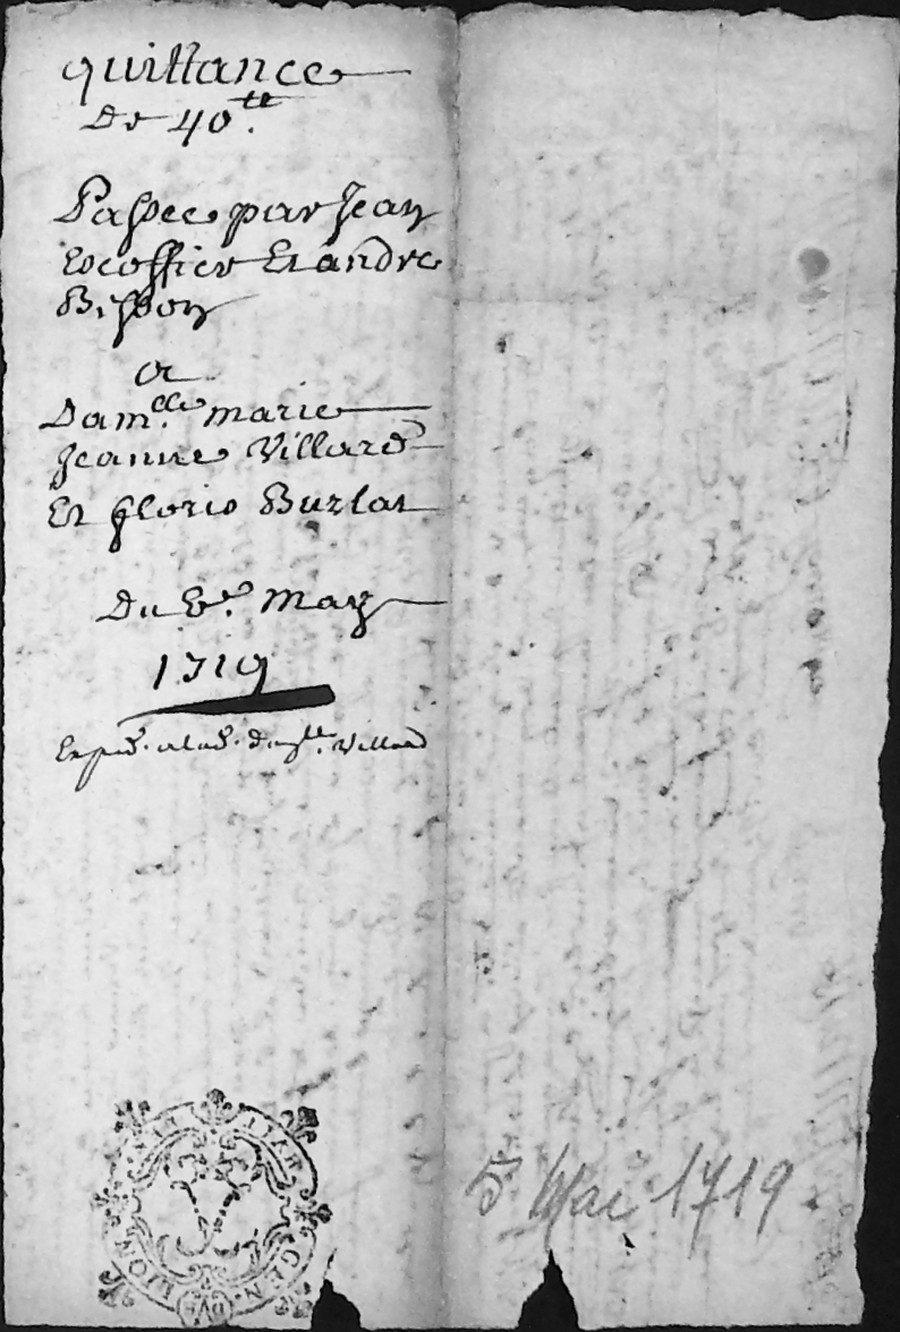 quittance
De 40.tt
Passée par Jean
Escoffier Et andré
Bisson
a
Dam.elle marie
Jeanne Villard
Et florio Burlat
Du 5.e May
1719
Exped. a lad. dlle. Villard
GEN. LION
5 Mai 1719